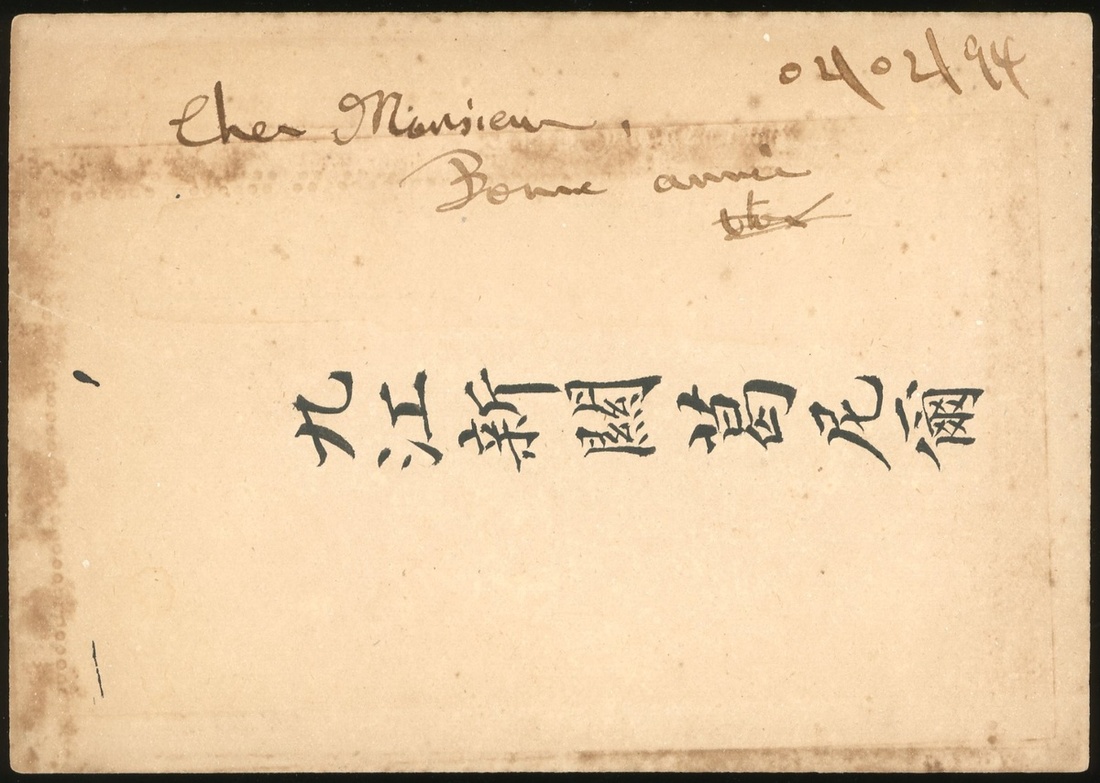 02/02/94
Cher Monsieur,
Bonne année
九江新關葛尼爾